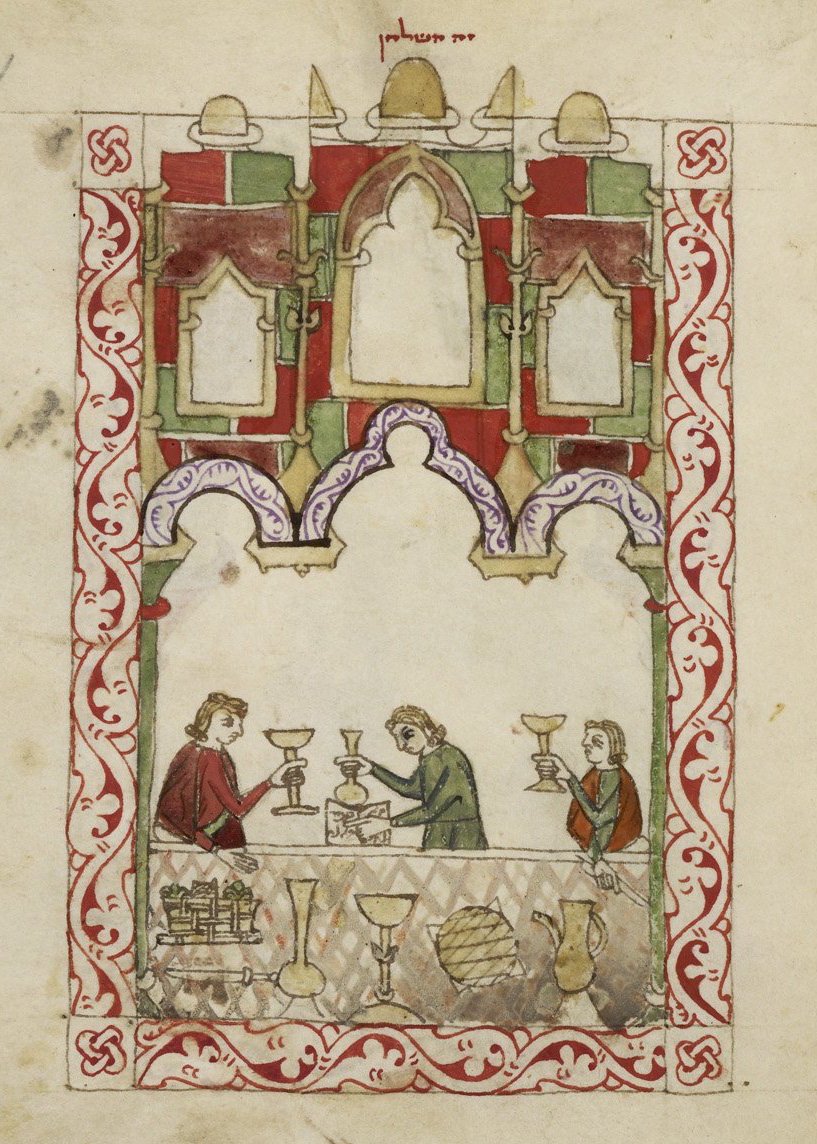 זה השלחן